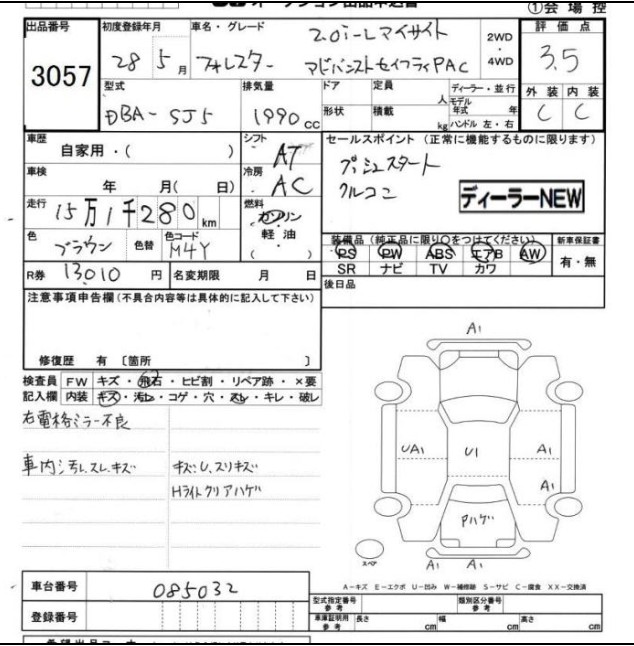 ①会場控
出品番号
3057
初度登録年月
28 5月
車名・グレード
2.0i-Lアイサイト
フォレスター アドバンストセイフティPAC
2WD
・
4WD
評価点
3.5
外装 内装
C C
型式
DBA-SJ5
排気量
1990cc
ドア 定員 人
形状 積載 kg
ディーラー・並行
モデル年式 年
ハンドル 左・右
車歴
自家用・( )
シフト
AT
車検
年 月( 日)
冷房
AC
走行
15万1千280km
燃料
ガソリン
軽油
( )
色
ブラウン
色替
色コード
M4Y
R券 13,010円
名変期限 月 日
セールスポイント(正常に機能するものに限ります)
プッシュスタート
クルコン
ディーラーNEW
装備品(純正品に限り○をつけてください)
PS PW ABS エアB AW
SR ナビ TV カワ
新車保証書
有・無
後日品
注意事項申告欄(不具合内容等は具体的に記入して下さい)
修復歴 有 〔箇所 〕
検査員記入欄
FW キズ・飛石・ヒビ割・リペア跡・×要
内装 キズ・汚レ・コゲ・穴・スレ・キレ・破レ
右電格ミラー不良
車内汚レ、スレ、キズ
キズU、スリキズ
Hライトクリアハゲ
A1
UA1 U1 A1
A1
Pハゲ
スペア
A1 A1
A-キズ E-エクボ U-凹み W-補修跡 S-サビ C-腐食 XX-交換済
車台番号 085032
登録番号
型式指定番号
参考
類別区分番号
参考
車庫証明用
参考
長さ cm 幅 cm 高さ cm